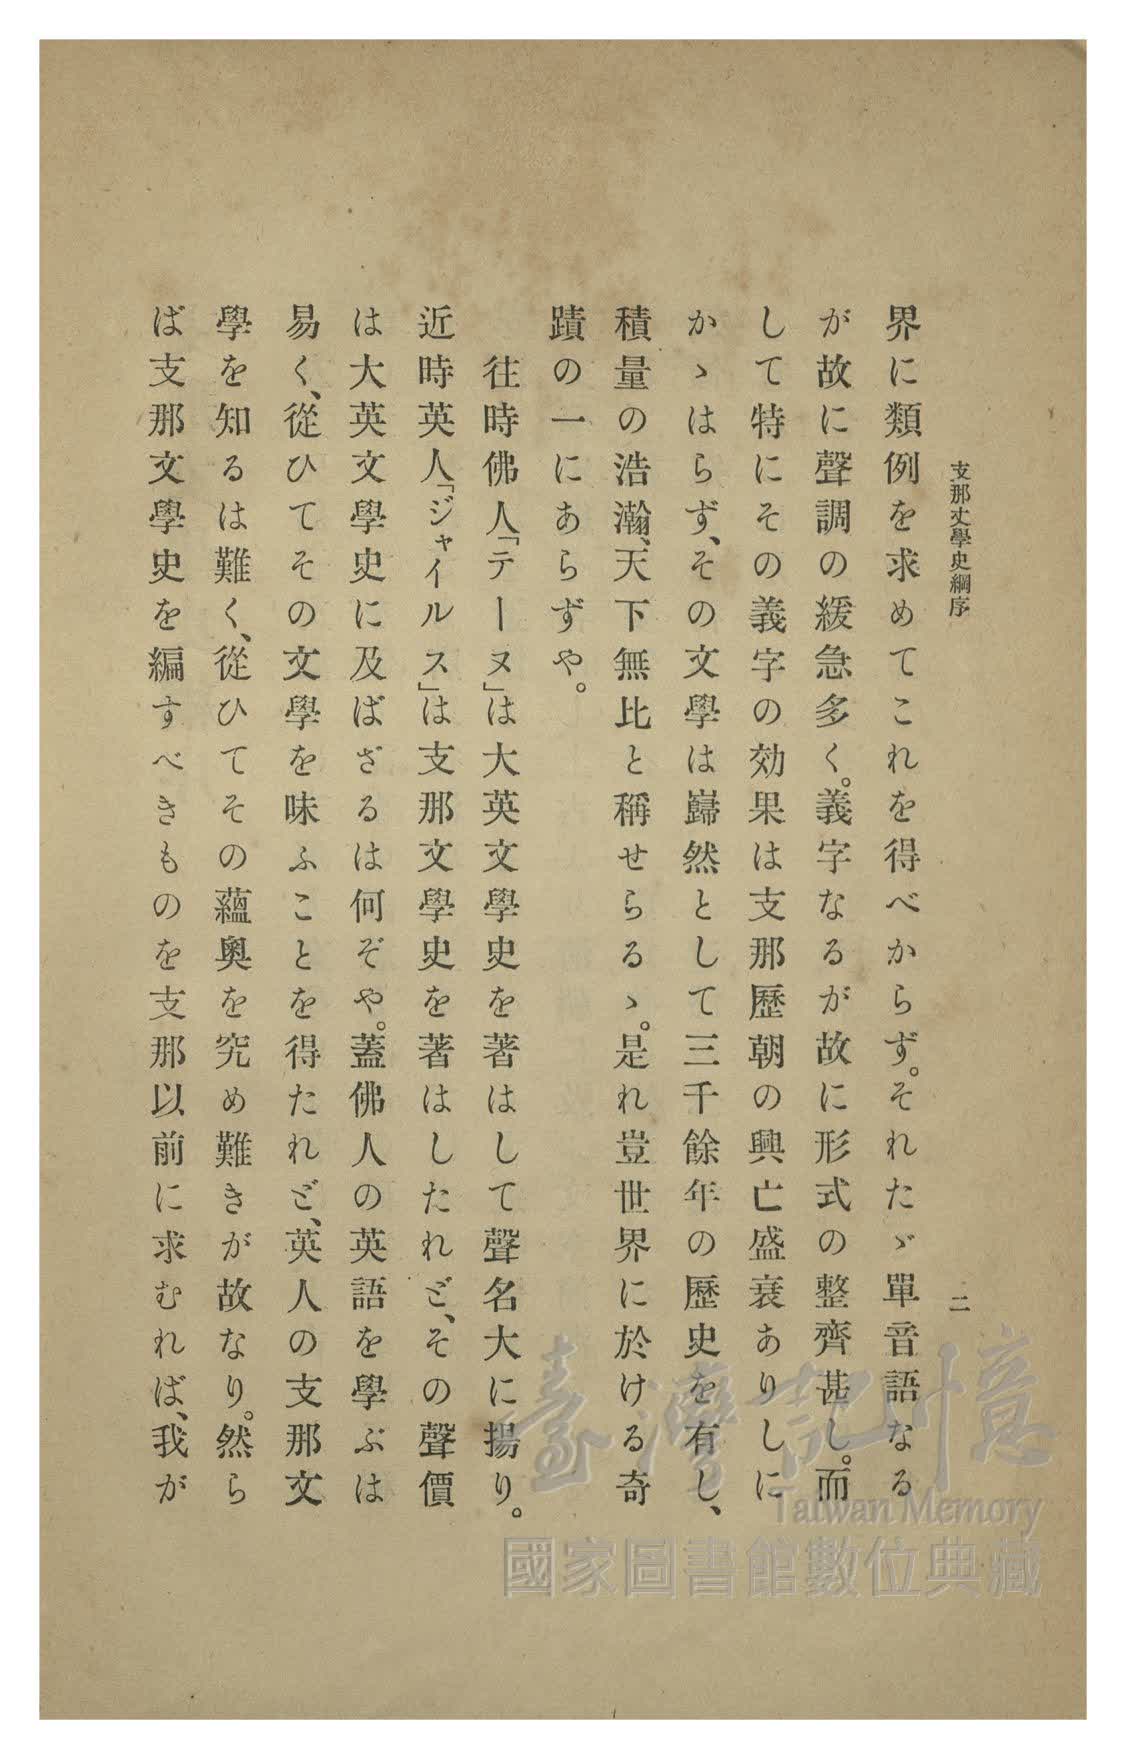 支那文學史綱序
二
界に類例を求めてこれを得べからず。それたゞ單音語なる
が故に聲調の緩急多く。義字なるが故に形式の整齊甚し。而
して特にその義字の効果は支那歷朝の興亡盛衰ありしに
かゝはらず、その文學は巋然として三千餘年の歷史を有し、
積量の浩瀚、天下無比と稱せらるゝ。是れ豈世界に於ける奇
蹟の一にあらずや。
往時佛人「テーヌ」は大英文學史を著はして聲名大に揚り。
近時英人「ジャイルス」は支那文學史を著はしたれど、その聲價
は大英文學史に及ばざるは何ぞや。蓋佛人の英語を學ぶは
易く、從ひてその文學を味ふことを得たれど、英人の支那文
學を知るは難く、從ひてその蘊奧を究め難きが故なり。然ら
ば支那文學史を編すべきものを支那以前に求むれば、我が
臺灣記憶
Taiwan Memory
國家圖書館數位典藏